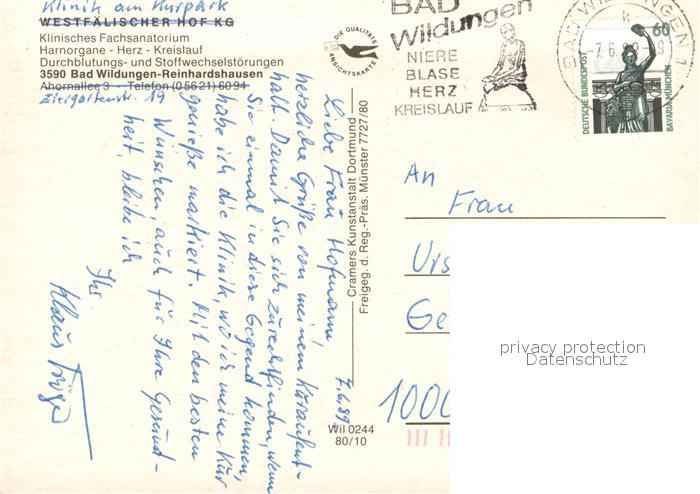 Klinik am Kurpark
WESTFÄLISCHER HOF KG
Klinisches Fachsanatorium
Harnorgane - Herz - Kreislauf
Durchblutungs- und Stoffwechselstörungen
3590 Bad Wildungen-Reinhardshausen
Ahornallee 3 - Telefon (05621) 6094
Ziergartenstr. 19
DIE QUALITÄTS
ANSICHTSKARTE
BAD
Wildungen
NIERE
BLASE
HERZ
KREISLAUF
BAD WILDUNGEN 1
k
-7.6.89-9
60
DEUTSCHE BUNDESPOST
BAVARIA MÜNCHEN
7.6.89
Liebe Frau Hofmann,
herzliche Grüße von meinem Kuraufent-
halt. Damit Sie sich zurechtfinden, wenn
Sie einmal in diese Gegend kommen,
habe ich die Klinik, wo ich meine Kur
genieße markiert. Mit den besten
Wünschen, auch für Ihre Gesund-
heit, bleibe ich
Ihr
Klaus
Cramers Kunstanstalt Dortmund
Freigeg. d. Reg.-Präs. Münster 7727/80
Wil 0244
80/10
An
Frau
Urs
Ge
1000
privacy protection
Datenschutz